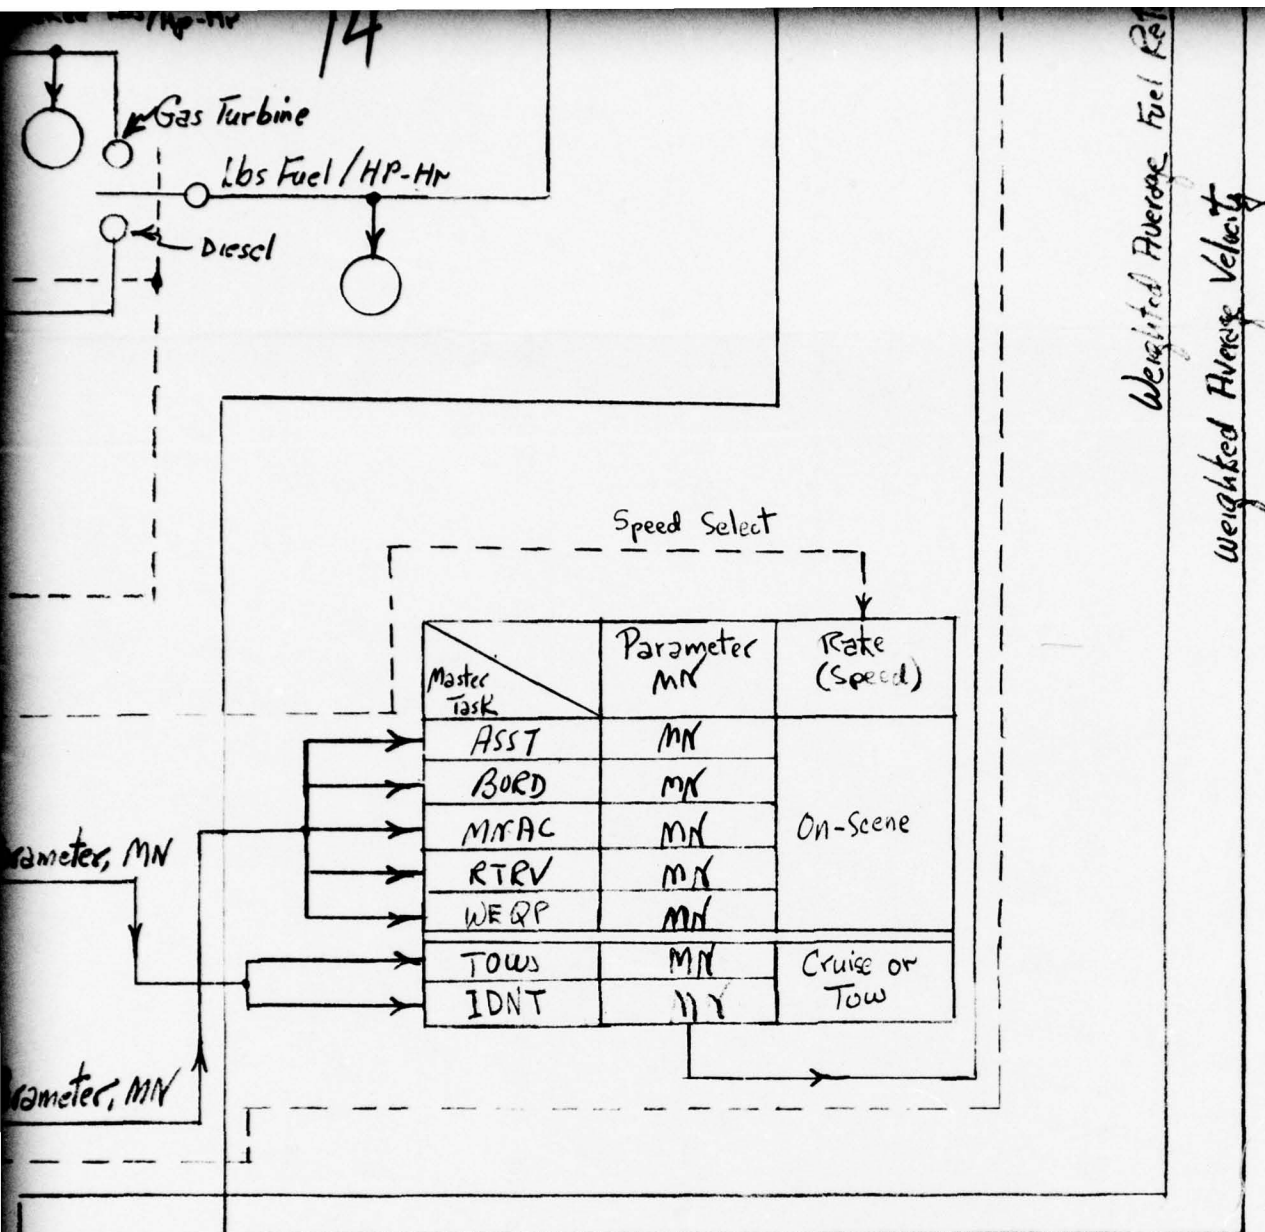 14
Gas Turbine
Lbs Fuel/HP-Hr
Diesel
Weighted Average Fuel
Weighted Average Velocity
Speed Select
Master
Task
Parameter
MN
Rate
(Speed)
ASST MN
BORD MN
MNAC MN
On-Scene
RTRV MN
WEQP MN
TOWS MN
Cruise or
Tow
IDNT
rameter, MN
rameter, MN